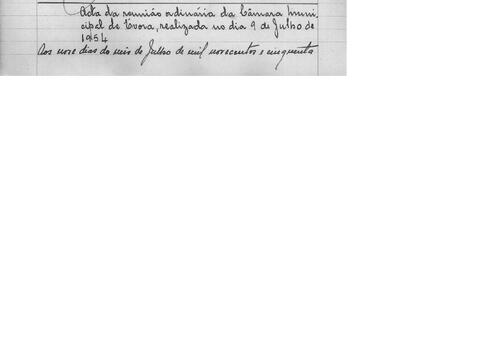 Acta da reunião ordinária da Câmara Muni
cipal de Évora, realizada no dia 9 de Julho de
1954
Aos nove dias do mês de Julho de mil novecentos e cinquenta